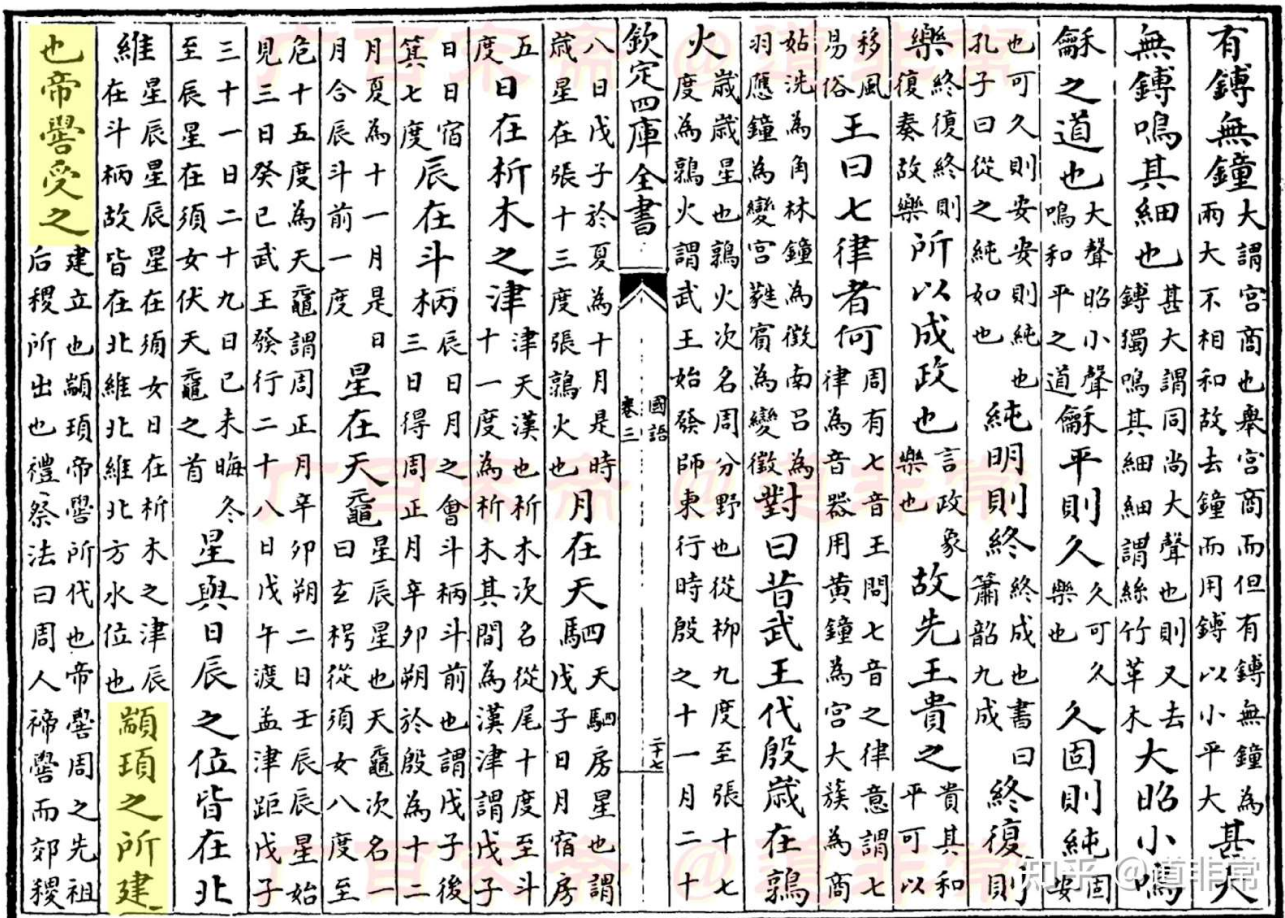 有鏄無鐘大謂宫商也舉宫商而但有鏄無鐘為兩大不相和故去鐘而用鏄以小平大甚大
無鏄鳴其細也甚大謂同尚大聲也則又去鏄獨鳴其細細謂絲竹革木大昭小鳴
龢之道也大聲昭小聲鳴和平之道龢平則久久可久樂也久固則純固安
也可久則安安則純也孔子曰從之純如也純明則終終成也書曰簫韶九成終復則
樂終復終則復奏故樂所以成政也言政象樂也故先王貴之貴其和平可以
移風易俗王曰七律者何周有七音王問七音之律意謂七律為音器用黃鐘為宫大蔟為商
姑洗為角林鐘為徵南吕為羽應鐘為變宫蕤賓為變徵對曰昔武王伐殷歲在鶉
火歲歲星也鶉火次名周分野也從栁九度至張十七度為鶉火謂武王始發師東行時殷之十一月二十
欽定四庫全書
國語
卷三
二十七
八日戊子於夏為十月是時歲星在張十三度張鶉火也月在天駟天駟房星也謂戊子日月宿房
五度日在析木之津津天漢也析木次名從尾十度至斗十一度為析木其間為漢津謂戊子
日日宿箕七度辰在斗柄辰日月之會斗柄斗前也謂戊子後三日得周正月辛卯朔於殷為十二
月夏為十一月是日月合辰斗前一度星在天黿星辰星也天黿次名一曰玄枵從須女八度至
危十五度為天黿謂周正月辛卯朔二日壬辰辰星始見三日癸巳武王發行二十八日戊午渡孟津距戊子
三十一日二十九日已未晦冬至辰星在須女伏天黿之首星與日辰之位皆在北
維星辰星辰星在須女日在析木之津辰在斗柄故皆在北維北維北方水位也顓頊之所建
也帝嚳受之建立也顓頊帝嚳所代也帝嚳周之先祖后稷所出也禮祭法曰周人禘嚳而郊稷
广百宋斋 @道非常
广百宋斋 @道非常
广百宋斋 @道非常
知乎 @道非常